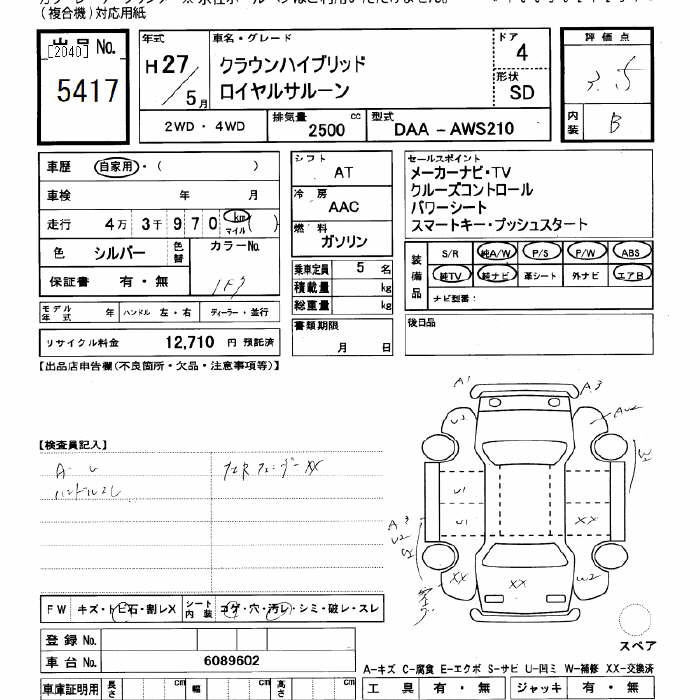 (複合機)対応用紙
出品 No.
[2040]
5417
年式 車名・グレード ドア 評価点
H27 クラウンハイブリッド 4
5月 ロイヤルサルーン 形状 SD
3.5
内装 B
2WD・4WD 排気量 2500 cc 型式 DAA-AWS210
車歴 自家用・( )
車検 年 月
走行 4万 3千 9 7 0 km マイル ( )
色 シルバー 色替 カラーNo. 1F7
保証書 有・無
モデル年式 年 ハンドル 左・右 ディーラー・並行
リサイクル料金 12,710 円 預託済
シフト AT
冷房 AAC
燃料 ガソリン
乗車定員 5 名
積載量 kg
総重量 kg
書類期限
月 日
セールスポイント
メーカーナビ・TV
クルーズコントロール
パワーシート
スマートキー・プッシュスタート
装備品 S/R 純A/W P/S P/W ABS
純TV 純ナビ 革シート 外ナビ エアB
ナビ型番:
後日品
【出品店申告欄(不良箇所・欠品・注意事項等)】
【検査員記入】
A・U
ハンドルスレ
A1 A3
U2
U1
U1 XX
A3
U2
XX XX W2
FW キズ・トビ石・割レX シート内装 コゲ・穴・汚レ・シミ・破レ・スレ
登録 No.
車台 No. 6089602
車庫証明用 長さ cm 幅 cm 高さ cm
スペア
A-キズ C-腐食 E-エクボ S-サビ U-凹ミ W-補修 XX-交換済
工具 有・無 ジャッキ 有・無